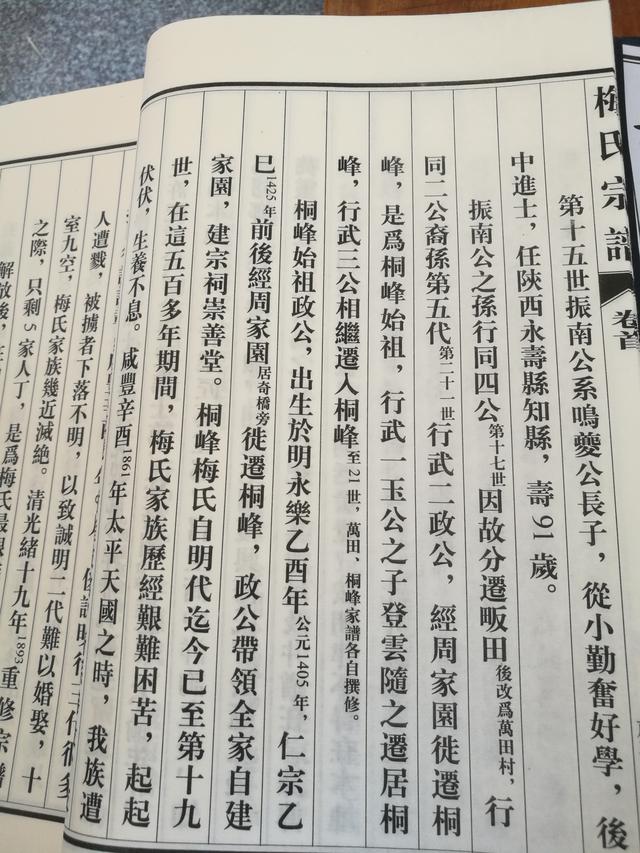 梅氏宗譜 卷首
第十五世振南公系鳴夔公長子，從小勤奮好學，後
中進士，任陝西永壽縣知縣，壽91歲。
振南公之孫行同四公第十七世因故分遷畈田後改爲萬田村，行
同二公裔孫第五代第二十一世行武二政公，經周家園徙遷桐
峰，是爲桐峰始祖，行武一玉公之子登雲隨之遷居桐
峰，行武三公相繼遷入桐峰至21世，萬田、桐峰家譜各自撰修。
桐峰始祖政公，出生於明永樂乙酉年公元1405年，仁宗乙
巳1425年前後經周家園居奇橋旁徙遷桐峰，政公帶領全家自建
家園，建宗祠崇善堂。桐峰梅氏自明代迄今已至第十九
世，在這五百多年期間，梅氏家族歷經艱難困苦，起起
伏伏，生養不息。咸豐辛酉1861年太平天國之時，我族遭
人遭戮，被擄者下落不明，以致誠明二代難以婚娶，十
室九空，梅氏家族幾近滅絶。清光緒十九年1893重修宗譜
之際，只剩5家人丁，是爲梅氏最
解放後，